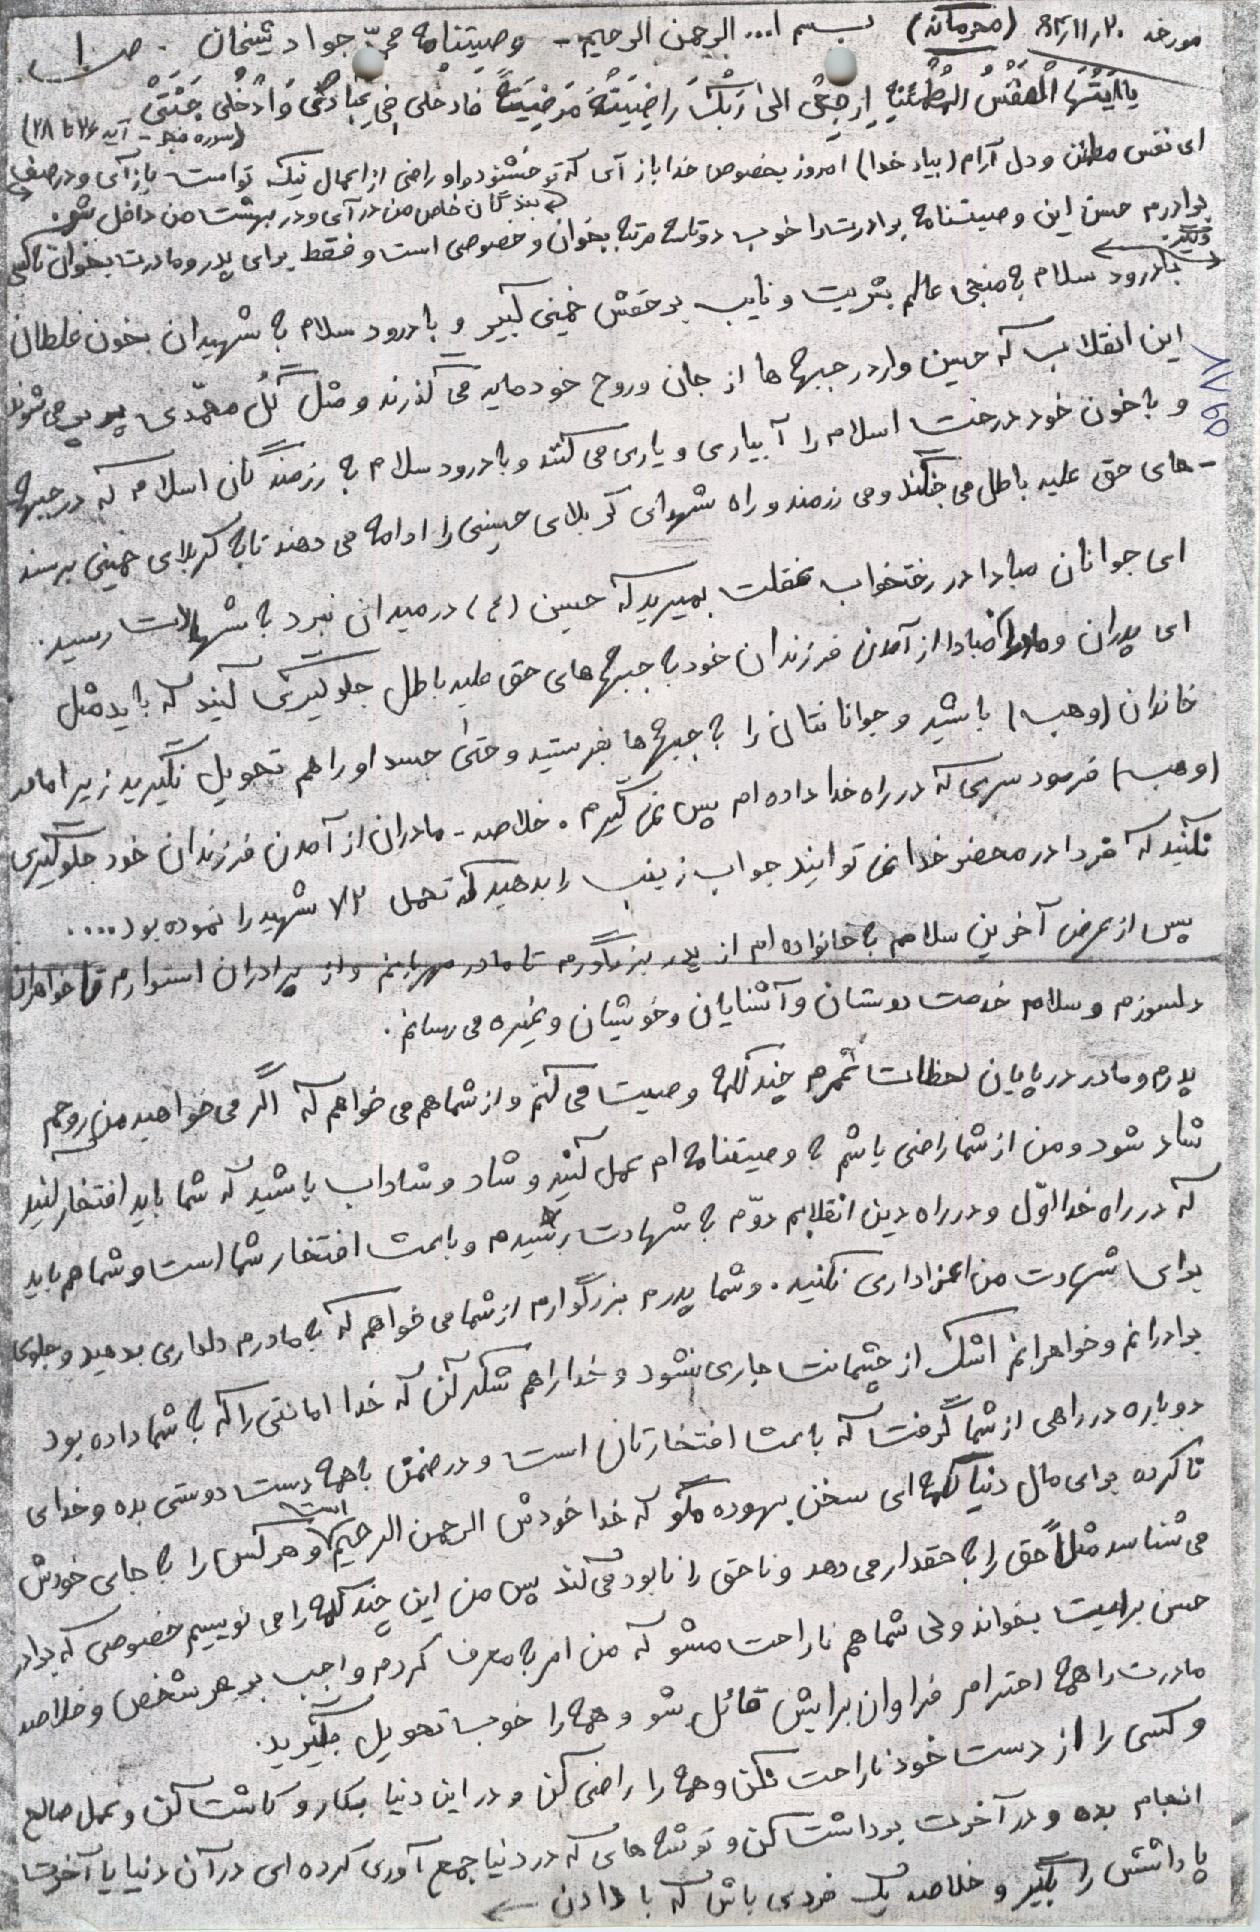 مورخه ۶۲٫۱۱٫۲۰ (محرمانه) بسم ا... الرحمن الرحیم - وصیتنامه جواد شیخان ص ۱
یا ایتها النفس المطمئنه ارجعی الی ربک راضیته مرضیته فادخلی فی عبادی وادخلی جنتی
(سوره فجر - آیه ۲۶ تا ۲۸)
ای نفس مطمئن و دل آرام (بیاد خدا) امروز بخصوص خدا باز آی که تو خشنود و او راضی از اعمال نیک تو است باز آی و در صف
بندگان خاص من در آی و در بهشت من داخل شو.
برادرم حسن این وصیتنامه برادرت را خوب دو تا سه مرتبه بخوان و خصوصی است و فقط برای پدر و مادرت بخوان تا کسی
دیگر.
با درود سلام به منجی عالم بشریت و نایب بر حقش خمینی کبیر و با درود سلام به شهیدان بخون غلطان
این انقلاب که حسین وار در جبهه ها از جان و روح خود مایه می گذرند و مثل گل محمدی پر پر می شوند
و با خون خود درخت اسلام را آبیاری و یاری می کنند و با درود سلام به رزمندگان اسلام که در جبهه
-های حق علیه باطل می جنگند و می رزمند و راه شهدای کربلای حسینی را ادامه می دهند تا به کربلای خمینی برسند
ای جوانان مبادا در رختخواب غفلت بمیرید که حسین (ع) در میدان نبرد به شهادت رسید.
ای پدران و مادران مبادا از آمدن فرزندان خود به جبهه های حق علیه باطل جلوگیری کنید که باید مثل
خاندان (وهب) باشید و جوانانتان را به جبهه ها بفرستید و حتی جسد او را هم تحویل نگیرید زیرا مادر
(وهب) فرمود سری که در راه خدا داده ام پس نمی گیرم . خلاصه - مادران از آمدن فرزندان خود جلوگیری
نکنید که فردا در محضر خدا نمی توانید جواب زینب را بدهید که تحمل ۷۲ شهید را نموده بود....
پس از عرض آخرین سلامم به خانواده ام از پدر بزرگوارم تا مادر مهربانم و از برادران استوارم تا خواهران
دلسوزم و سلام خدمت دوستان و آشنایان و خویشان و غیره می رسانم.
پدرم و مادر در پایان لحظات عمرم چند کلمه وصیت می کنم و از شما هم می خواهم که اگر می خواهید من روحم
شاد شود و من از شما راضی باشم به وصیتنامه ام عمل کنید و شاد و شاداب باشید که شما باید افتخار کنید
که در راه خدا اوّل و در راه دین انقلابم دوّم به شهادت رسیدم و باعث افتخار شما است و شما هم باید
برای شهادت من اعزاداری نکنید . و شما پدرم بزرگوارم از شما می خواهم که به مادرم دلداری بدهید و جلوی
برادرانم و خواهرانم اشک از چشمانت جاری نشود و خدا را هم شکر کن که خدا امانتی را که به شما داده بود
دوباره در راهی از شما گرفت که باعث افتخارتان است و در ضمن با همه دست دوستی بده و خدای
ناکرده برای مال دنیا کلمه ای سخن بیهوده مگو که خدا خودش الرحمن الرحیم است و هر کس را به جای خودش
می شناسد مثلاً حق را به حقدار می دهد و ناحق را نابود می کند پس من این چند کلمه را می نویسم خصوصی که برادر
حسن برایت بخواند ولی شما هم ناراحت مشو که من امر به معرف کردم واجب بر هر شخص و خلاصه
مادرت را همه احترام فراوان برایش قائل شو و همه را خوب تحویل بگیرید.
و کسی را از دست خود ناراحت نکن و همه را راضی کن و در این دنیا بکار و کاشت کن و عمل صالح
انجام بده و در آخرت برداشت کن و توشه های که در دنیا جمع آوری کرده ای در آن دنیا یا آخرت
پاداشش را بگیر و خلاصه یک فردی باش که با دادن